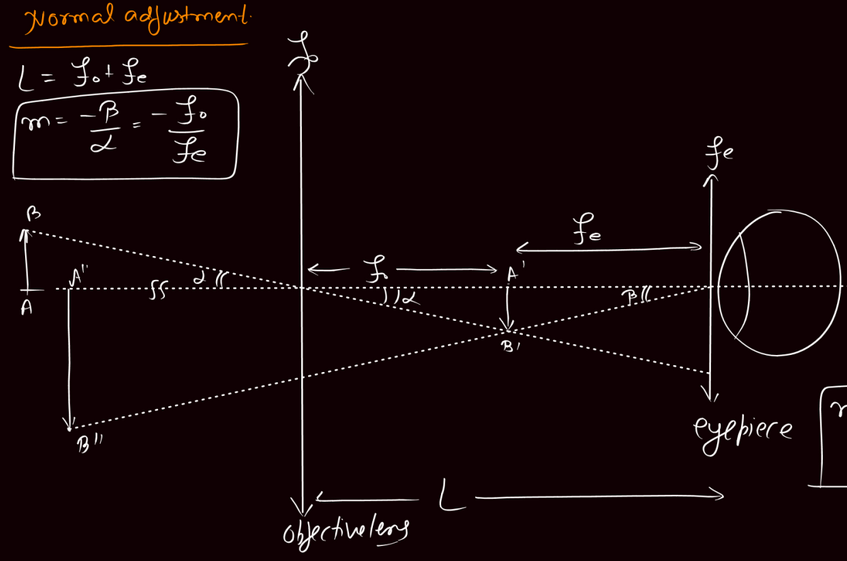 Normal adjustment.
L = fo + fe
m = -β/α = -fo/fe
fo
fe
fe
fo
B
A"
A
α
α
A'
β
B'
B"
eyepiece
L
objective lens